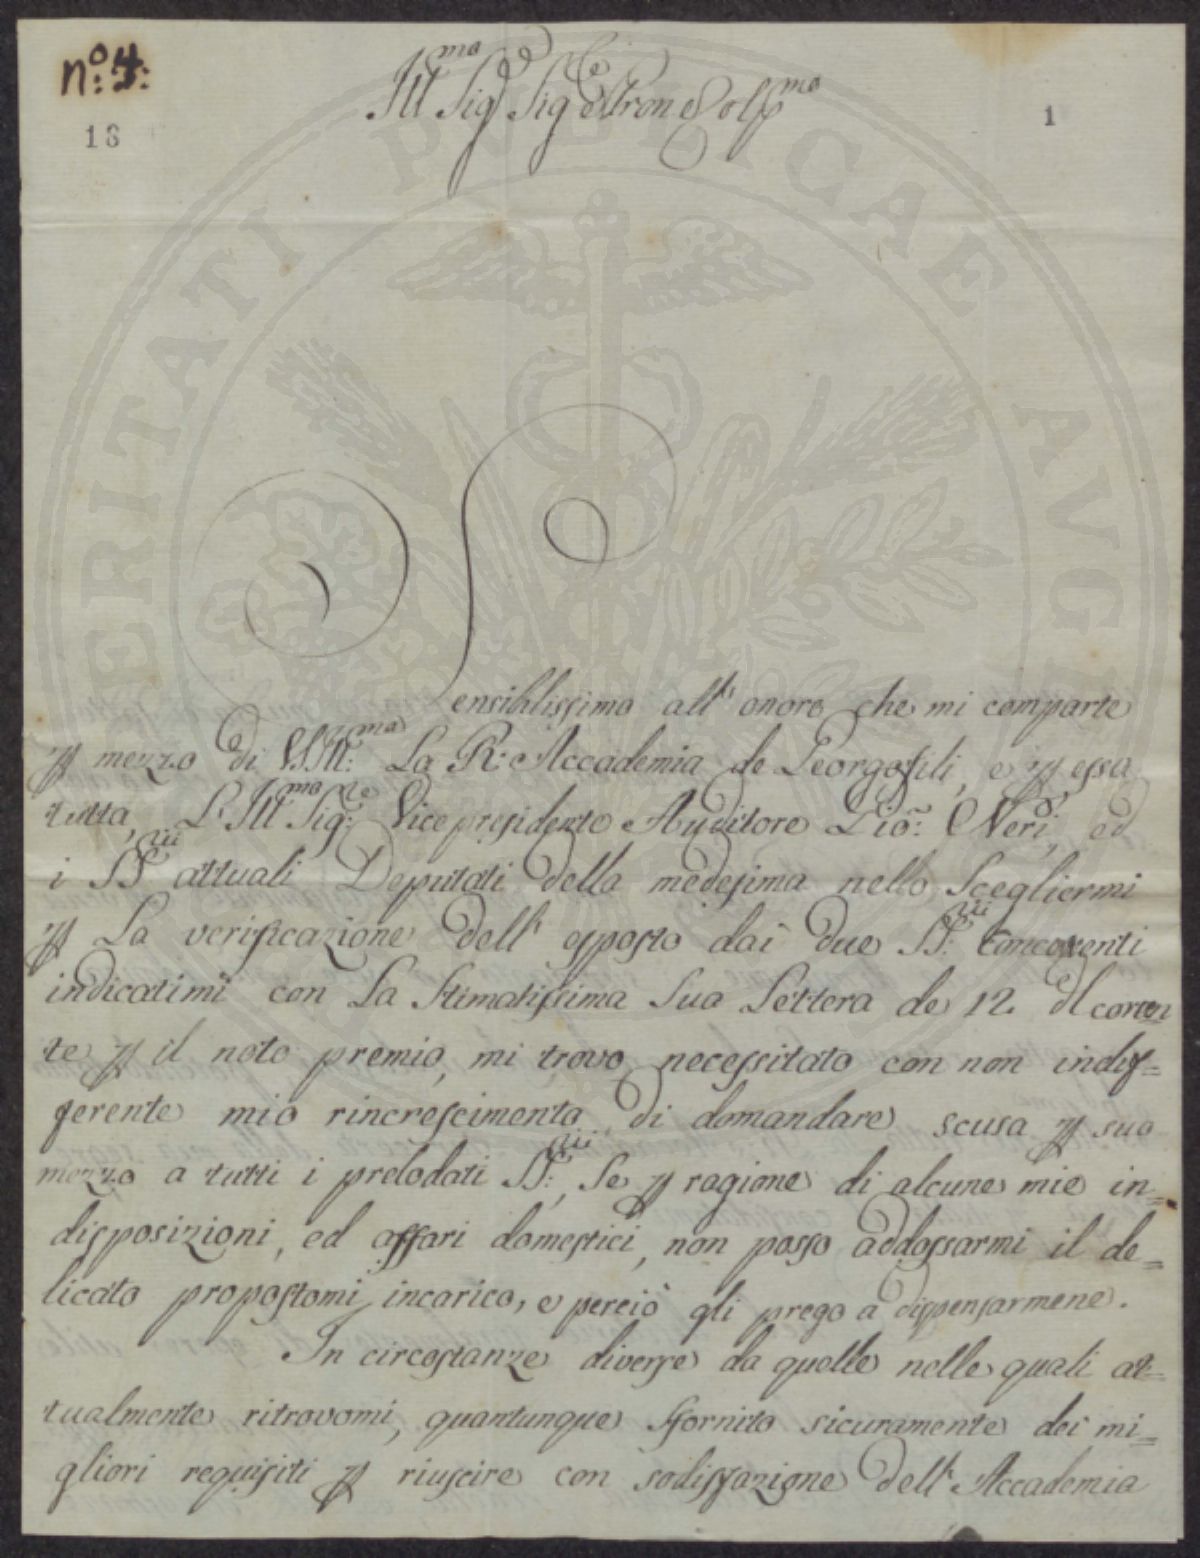 nº: 4:
18
1
Ill.mo Sig.e Sig.e e Pron Col.mo
Sensiblissimo all' onore che mi comparte
p mezzo di V.S. Ill:ma La R: Accademia de Georgofili, e p essa
tutta, L'Ill.mo Sig:re Vicepresidente Auditore Gio: Neri, ed
i SS.rii attuali Deputati della medesima nello Scegliermi
p La verificazione dell' esposto dai due SS:rii Concorrenti
indicatimi con La Stimatissima Sua Lettera de 12. del corren
te p il noto premio, mi trovo necessitato con non indif=
ferente mio rincrescimento di domandare scusa p suo
mezzo a tutti i prelodati SS:rii, Se p ragione di alcune mie in=
disposizioni, ed affari domestici, non posso addossarmi il de=
licato propostomi incarico, e perciò gli prego a dispensarmene.
In circostanze diverse da quelle nelle quali at=
tualmente ritrovomi, quantunque sfornito sicuramente dei mi=
gliori requisiti p riuscire con sodisfazione dell' Accademia
VERITATI PUBLICAE AVG